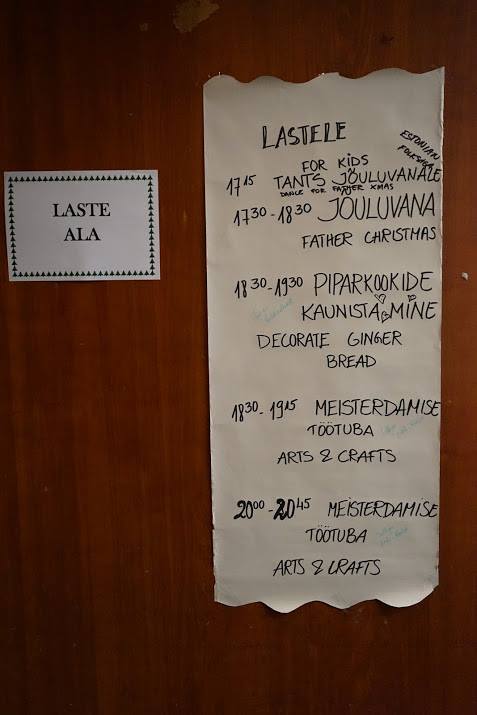 LASTE
ALA
LASTELE
FOR KIDS
ESTONIAN
17 15 TANTS JÕULUVANALE
DANCE FOR FATHER XMAS
17 30 - 18 30 JÕULUVANA
FATHER CHRISTMAS
18 30 - 19 30 PIPARKOOKIDE
KAUNISTAMINE
DECORATE GINGER
BREAD
18 30 - 19 15 MEISTERDAMISE
TÖÖTUBA
ARTS & CRAFTS
20 00 - 20 45 MEISTERDAMISE
TÖÖTUBA
ARTS & CRAFTS